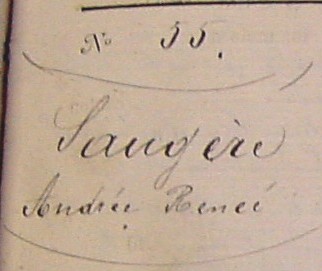 No 55.
Saugère
Andrée Reneé